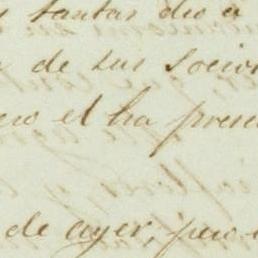 tantas dio a
de sus socio
el ha pres
de ayer, pero